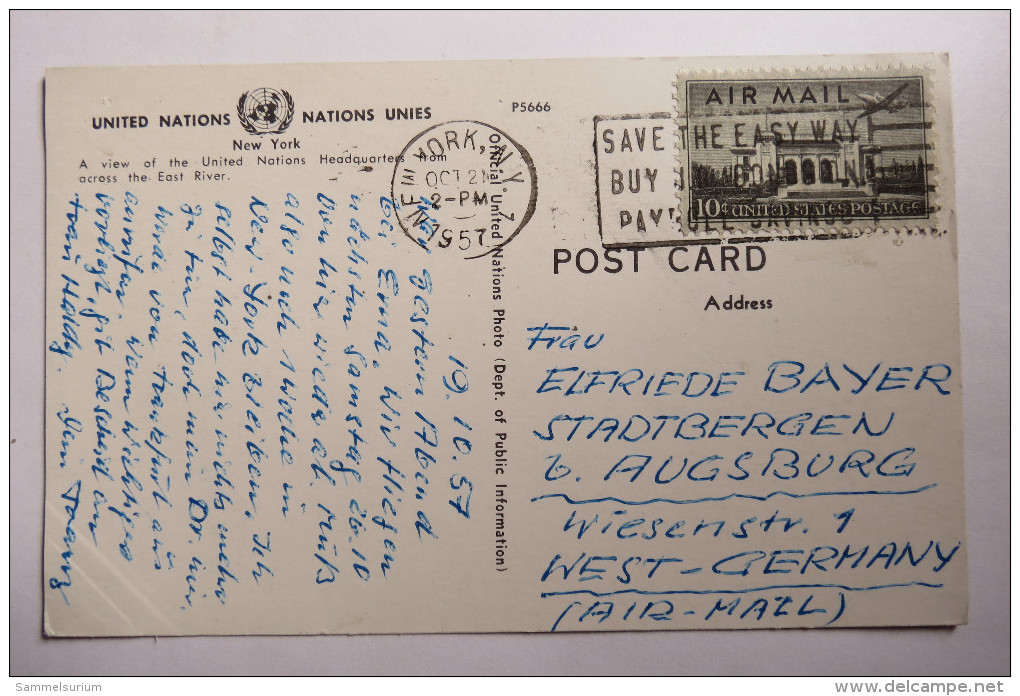 UNITED NATIONS NATIONS UNIES
New York
A view of the United Nations Headquarters from
across the East River.
P5666
NEW YORK, N.Y.
OCT 21
2-PM
1957
SAVE THE EASY WAY
BUY BONDS
PAYROLL SAVINGS
AIR MAIL
10¢ UNITED STATES POSTAGE
POST CARD
Address
Official United Nations Photo (Dept. of Public Information)
19.10.57
gestern Abend
bei Erna. Wir fliegen
nächsten Samstag 26.10
von hier wieder ab. Muß
also noch 1 Woche in
New-York bleiben. Ich
selbst habe hier nichts mehr
zu tun, doch mein Dr.
Werde von Frankfurt aus
anrufen. Wenn wichtiges
vorliegt, gib Bescheid an
Frau Dein Franz
Frau
ELFRIEDE BAYER
STADTBERGEN
b. AUGSBURG
Wiesenstr. 1
WEST-GERMANY
(AIR-MAIL)
Sammelsurium
delcampe.net